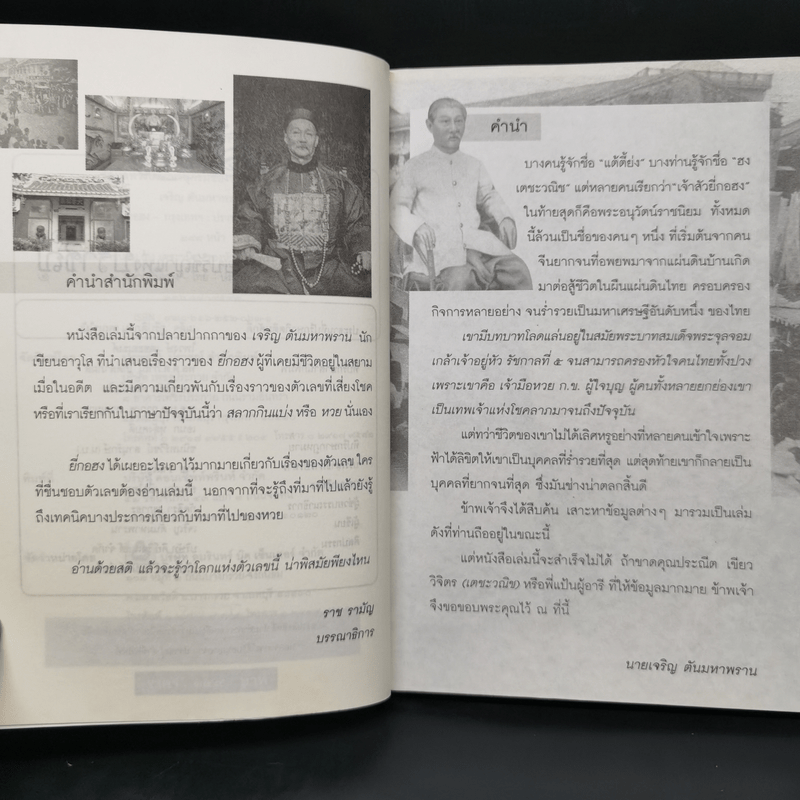 คำนำสำนักพิมพ์
หนังสือเล่มนี้จากปลายปากกาของ เจริญ ตันมหาพราน นัก
เขียนอาวุโส ที่นำเสนอเรื่องราวของ ยี่กอฮง ผู้ที่เคยมีชีวิตอยู่ในสยาม
เมื่อในอดีต และมีความเกี่ยวพันกับเรื่องราวของตัวเลขที่เสี่ยงโชค
หรือที่เราเรียกกันในภาษาปัจจุบันนี้ว่า สลากกินแบ่ง หรือ หวย นั่นเอง
ยี่กอฮง ได้เผยอะไรเอาไว้มากมายเกี่ยวกับเรื่องของตัวเลข ใคร
ที่ชื่นชอบตัวเลขต้องอ่านเล่มนี้ นอกจากที่จะรู้ถึงที่มาที่ไปแล้วยังรู้
ถึงเทคนิคบางประการเกี่ยวกับที่มาที่ไปของหวย
อ่านด้วยสติ แล้วจะรู้ว่าโลกแห่งตัวเลขนี้ น่าพิสมัยพียงไหน
ราช รามัญ
บรรณาธิการ
คำนำ
บางคนรู้จักชื่อ "แต้ตี้ย่ง" บางท่านรู้จักชื่อ "ฮง
เตชะวณิช" แต่หลายคนเรียกว่า"เจ้าสัวยี่กอฮง"
ในท้ายสุดก็คือพระอนุวัตน์ราชนิยม ทั้งหมด
นี้ล้วนเป็นชื่อของคนๆ หนึ่ง ที่เริ่มต้นจากคน
จีนยากจนที่อพยพมาจากแผ่นดินบ้านเกิด
มาต่อสู้ชีวิตในผืนแผ่นดินไทย ครอบครอง
กิจการหลายอย่าง จนร่ำรวยเป็นมหาเศรษฐีอันดับหนึ่ง ของไทย
เขามีบทบาทโลดแล่นอยู่ในสมัยพระบาทสมเด็จพระจุลจอม
เกล้าเจ้าอยู่หัว รัชกาลที่ ๕ จนสามารถครองหัวใจคนไทยทั้งปวง
เพราะเขาคือ เจ้ามือหวย ก.ข. ผู้ใจบุญ ผู้คนทั้งหลายยกย่องเขา
เป็นเทพเจ้าแห่งโชคลาภมาจนถึงปัจจุบัน
แต่ทว่าชีวิตของเขาไม่ได้เลิศหรูอย่างที่หลายคนเข้าใจเพราะ
ฟ้าได้ลิขิตให้เขาเป็นบุคคลที่ร่ำรวยที่สุด แต่สุดท้ายเขาก็กลายเป็น
บุคคลที่ยากจนที่สุด ซึ่งมันช่างน่าตลกสิ้นดี
ข้าพเจ้าจึงได้สืบค้น เสาะหาข้อมูลต่างๆ มารวมเป็นเล่ม
ดังที่ท่านถืออยู่ในขณะนี้
แต่หนังสือเล่มนี้จะสำเร็จไม่ได้ ถ้าขาดคุณประณีต เขียว
วิจิตร (เตชะวณิช) หรือพี่แป้นผู้อารี ที่ให้ข้อมูลมากมาย ข้าพเจ้า
จึงขอขอบพระคุณไว้ ณ ที่นี้
นายเจริญ ตันมหาพราน